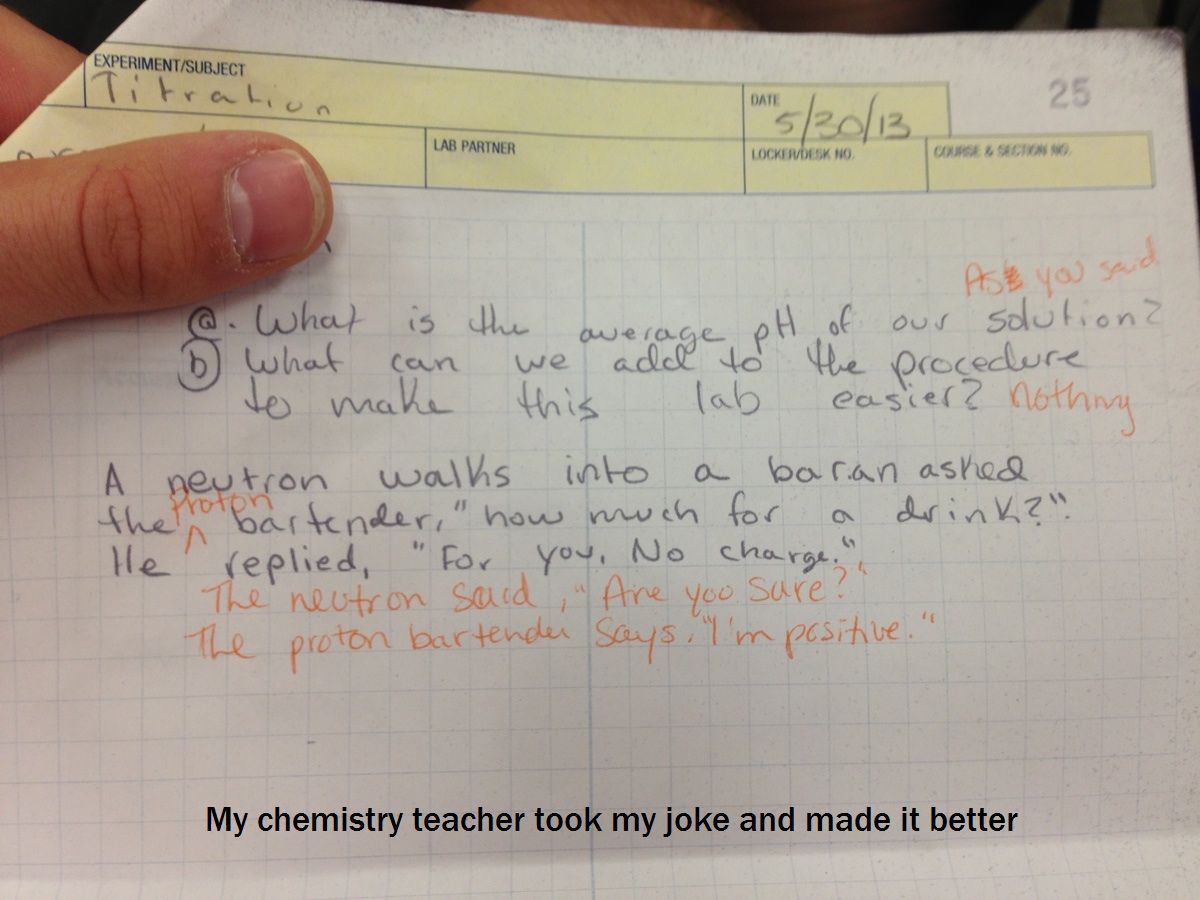 EXPERIMENT/SUBJECT
Titration
DATE
5/30/13
25
LAB PARTNER
LOCKER/DESK NO.
COURSE & SECTION NO.
As you said
@. What is the average pH of our solution?
b) What can we add to the procedure
to make this lab easier? Nothing
A neutron walks into a bar.an asked
proton
the ^ bartender, "how much for a drink?".
He replied, "For you, No charge."
The neutron said, "Are you sure?"
The proton bartender says, "I'm positive."
My chemistry teacher took my joke and made it better